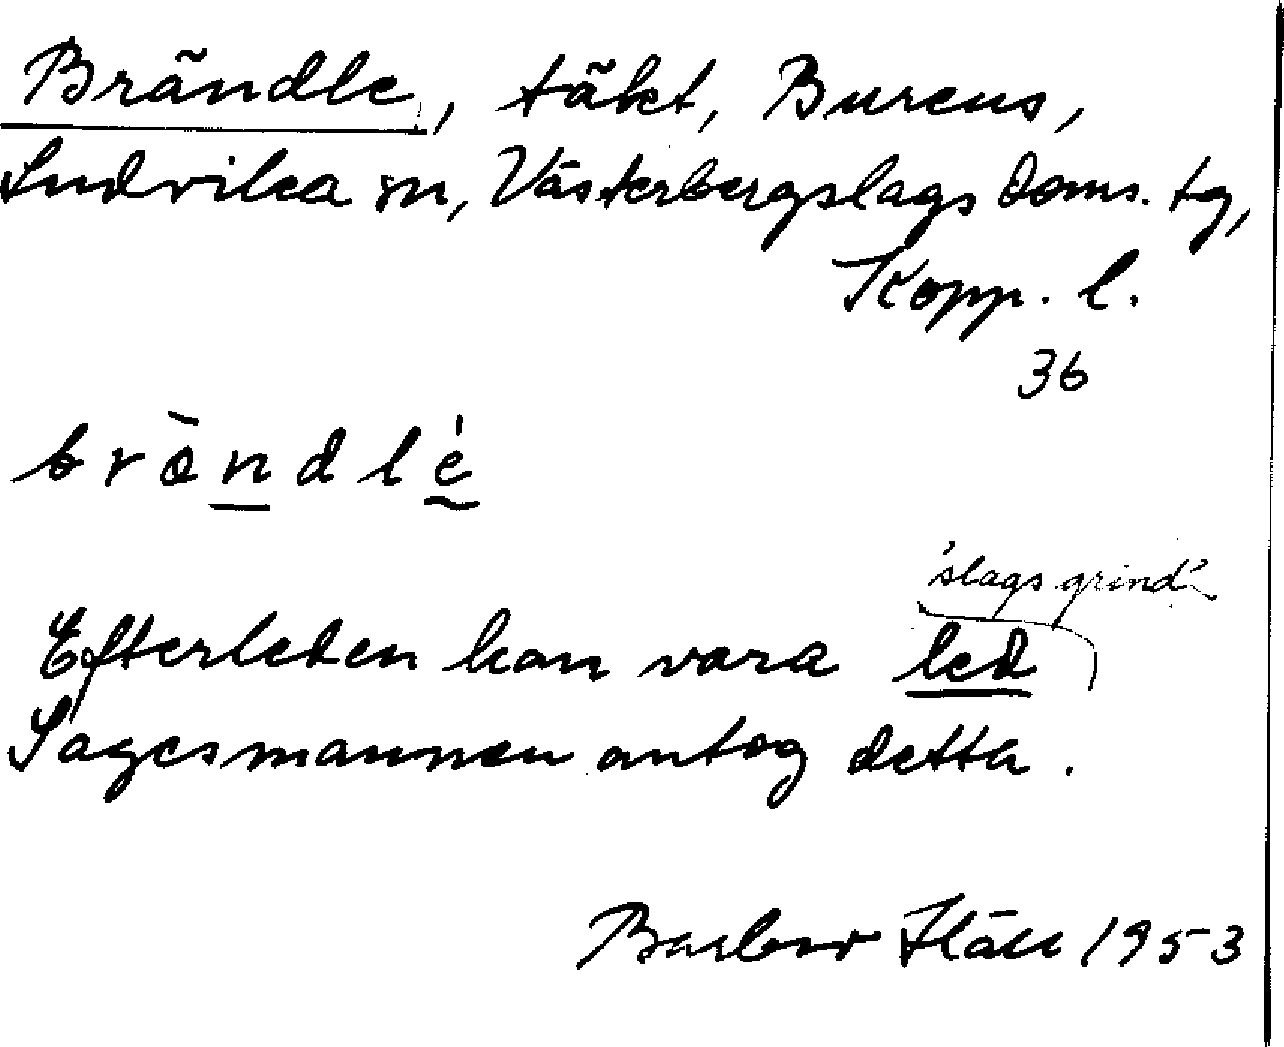 Brändle, täkt, Burens,
Ludvika sn, Västerbergslags doms. tg,
Kopp. l.
36
bròndlé
'slags grind'
Efterleden kan vara led
Sagesmannen antog detta.
Barbro 1953